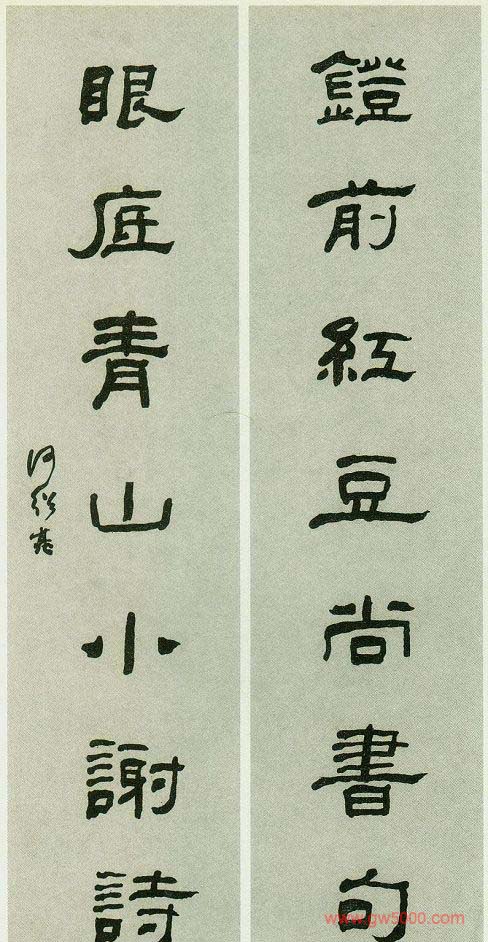 鐙前紅豆尚書句
眼底青山小謝詩
何紹基
www.gw5000.com